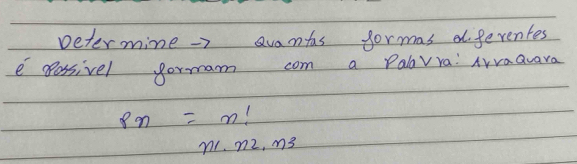 Determine → Quantas formas diferentes
é Possível formam com a Palavra: Arraquara
Pn = n!
n1. n2, n3